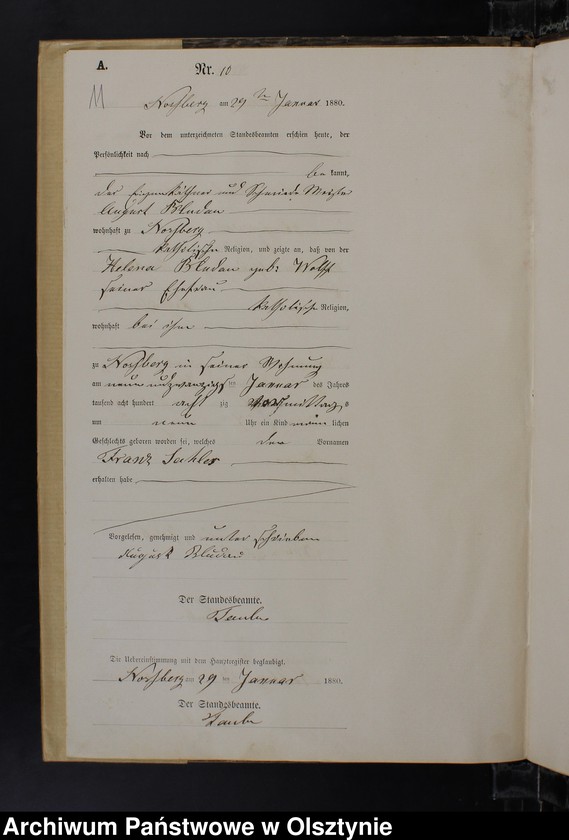 A.
Nr. 10
11
am 29ten Januar 1880.
Vor dem unterzeichneten Standesbeamten erschien heute, der
Persönlichkeit nach
be kannt,
der Eigenkäthner und Schmiede Meister
August Bludau
wohnhaft zu
katholischer Religion, und zeigte an, daß von der
Helena Bludau geb: Wolff
seiner Ehefrau
katholischer Religion,
wohnhaft bei ihm
zu in seiner Wohnung
am neun und zwanzigsten Januar des Jahres
tausend acht hundert acht zig Vormittags
um neun Uhr ein Kind männ lichen
Geschlechts geboren worden sei, welches den Vornamen
Franz
erhalten habe
Vorgelesen, genehmigt und unterschrieben
August Bludau
Der Standesbeamte.
Die Uebereinstimmung mit dem Hauptregister beglaubigt.
am 29 ten Januar 1880.
Der Standesbeamte.
Archiwum Państwowe w Olsztynie